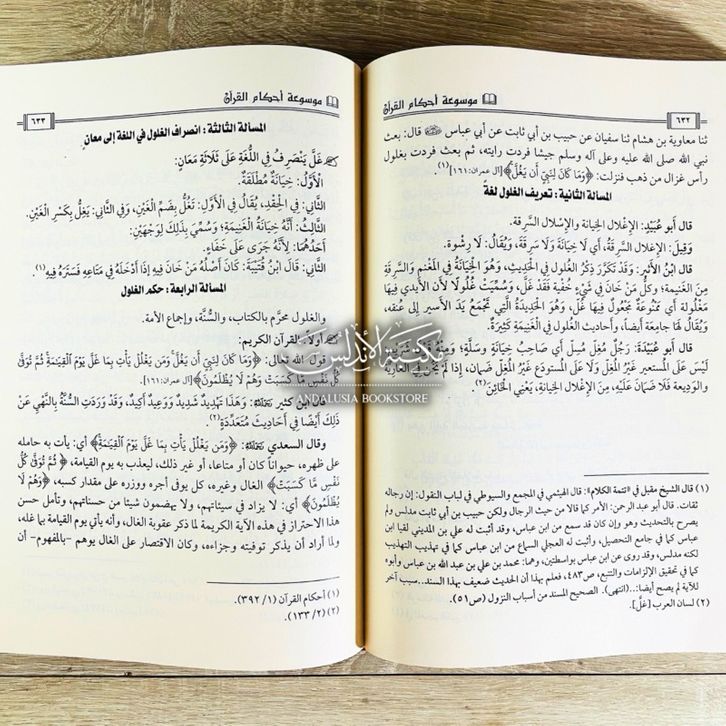 موسوعة أحكام القرآن
٦٣٢
ثنا معاوية بن هشام ثنا سفيان عن حبيب بن أبي ثابت عن أبي عباس قال: بعث
نبي الله صلى الله عليه وعلى آله وسلم جيشا فردت رايته، ثم بعث فردت بغلول
رأس غزال من ذهب فنزلت: ﴿وَمَا كَانَ لِنَبِيٍّ أَن يَغُلَّ﴾ [آل عمران: ١٦١](١)
المسالة الثانية: تعريف الغلول لغة
قال أبو عُبَيْدٍ: الإغْلال الخيانة والإسْلال السَّرِقة.
وَقِيلَ: الإِغلال السَّرِقَةُ، أَي لَا خِيَانَةَ وَلَا سَرِقة، وَيُقَالُ: لَا رِشْوة.
قالَ ابْنُ الأَثير: وَقَدْ تَكَرَّرَ ذِكْرُ الغُلول فِي الْحَدِيثِ، وَهُوَ الْخِيَانَةُ فِي المَغْنم والسَّرِقة
مِنَ الغَنيمة؛ وكلُّ مَنْ خَانَ فِي شَيْءٍ خُفْية فَقَدْ غَلَّ، وَسُمِّيَتْ غُلُولًا لأن الأيدي فيها
مَغْلولة أي مَمْنُوعَةٌ مَجْعُولٌ فِيهَا غُلٌّ، وَهُوَ الْحَدِيدَةُ الَّتِي تَجْمَعُ يَدَ الأَسير إِلى عُنقه،
وَيُقَالُ لَهَا جامِعة أَيضاً، وأَحاديث الغُلول فِي الْغَنِيمَةِ كَثِيرَةٌ.
قالَ أبو عُبيْدَةَ: رَجُلٌ مُغِلٌّ مُسِلّ أَي صَاحِبُ خِيَانَةٍ وسَلَّةٍ؛ وَمِنْهُ
لَيْسَ عَلَى المُستعير غَيْرِ المُغِلّ وَلَا عَلَى المُستودَع غَيْرِ المُغِلّ ضَمان، إِذا لَمْ
والوَدِيعة فَلَا ضَمان عَلَيْهِ، مِنَ الإِغْلال الْخِيَانَةِ، يَعْنِي الْخَائِنَ(٢).
(١) قال الشيخ مقبل في «تتمة الكلام»: قال الهيثمي في المجمع والسيوطي في لباب النقول: إن رجاله
ثقات. قال أبو عبد الرحمن: الأمر كما قالا من حيث الرجال ولكن حبيب بن أبي ثابت مدلس ولم
يصرح بالتحديث وهو وإن كان قد سمع من ابن عباس، وقد أثبت له علي بن المديني لقيا ابن
عباس كما في جامع التحصيل، وأثبت له العجلي السماع من ابن عباس كما في تهذيب التهذيب
لكنه مدلس، وقد روى عن ابن عباس بواسطتين، وهما: محمد بن علي بن عبد الله بن عباس وأبوه
كما في تحقيق الإلزامات والتتبع، ص٤٨٣، فعلم بهذا أن الحديث ضعيف بهذا السند..سبب آخر
للآية لم يصح أيضا:..(انتهى). الصحيح المسند من أسباب النزول (ص٥١).
(٢) لسان العرب [غَلَّ].
موسوعة أحكام القرآن
٦٣٣
المسالة الثالثة: انصراف الغلول في اللغة إلى معان
غَلَّ يَنْصَرِفُ فِي اللُّغَةِ عَلَى ثَلَاثَةِ مَعَانٍ:
الْأَوَّلُ: خِيَانَةٌ مُطْلَقَةٌ.
الثاني: فِي الْحِقْدِ، يُقَالُ فِي الْأَوَّلِ: تَغُلُّ بِضَمِّ الْغَيْنِ، وَفِي الثَّانِي: يَغِلُّ بِكَسْرِ الْغَيْنِ.
الثَّالِثُ: أَنَّهُ خِيَانَةُ الْغَنِيمَةِ؛ وَسُمِّيَ بِذَلِكَ لِوَجْهَيْنِ:
أَحَدُهُمَا: لِأَنَّهُ جَرَى عَلَى خَفَاءٍ.
الثَّانِي: قَالَ ابْنُ قُتَيْبَةَ: كَانَ أَصْلُهُ مَنْ خَانَ فِيهِ إذَا أَدْخَلَهُ فِي مَتَاعِهِ فَسَتَرَهُ فِيهِ(١).
المسالة الرابعة: حكم الغلول
والغلول محرَّم بالكتاب، والسُّنَّة، وإجماع الأمة.
أولا: القرآن الكريم:
قول الله تعالى: ﴿وَمَا كَانَ لِنَبِيٍّ أَن يَغُلَّ وَمَن يَغْلُلْ يَأْتِ بِمَا غَلَّ يَوْمَ الْقِيَامَةِ ثُمَّ تُوَفَّى
كُلُّ نَفْسٍ مَّا كَسَبَتْ وَهُمْ لَا يُظْلَمُونَ﴾ [آل عمران: ١٦١].
ابن كثير: وَهَذَا تَهْدِيدٌ شَدِيدٌ وَوَعِيدٌ أَكِيدٌ، وَقَدْ وَرَدَتِ السُّنَّةُ بِالنَّهْيِ عَنْ
ذَلِكَ أَيْضًا فِي أَحَادِيثَ مُتَعَدِّدَةٍ(٢).
وقال السعدي: ﴿وَمَن يَغْلُلْ يَأْتِ بِمَا غَلَّ يَوْمَ الْقِيَامَةِ﴾ أي: يأت به حامله
على ظهره، حيواناً كان أو متاعا، أو غير ذلك، ليعذب به يوم القيامة، ﴿ثُمَّ تُوَفَّى كُلُّ
نَفْسٍ مَّا كَسَبَتْ﴾ الغال وغيره، كل يوفى أجره ووزره على مقدار كسبه، ﴿وَهُمْ لَا
يُظْلَمُونَ﴾ أي: لا يزاد في سيئاتهم، ولا يهضمون شيئا من حسناتهم، وتأمل حسن
هذا الاحتراز في هذه الآية الكريمة لما ذكر عقوبة الغال، وأنه يأتي يوم القيامة بما غله،
ولما أراد أن يذكر توفيته وجزاءه، وكان الاقتصار على الغال يوهم -بالمفهوم- أن
(١) أحكام القرآن (١/ ٣٩٢).
(٢) (٢/ ١٣٣).
مكتبة الأندلس
ANDALUSIA BOOKSTORE